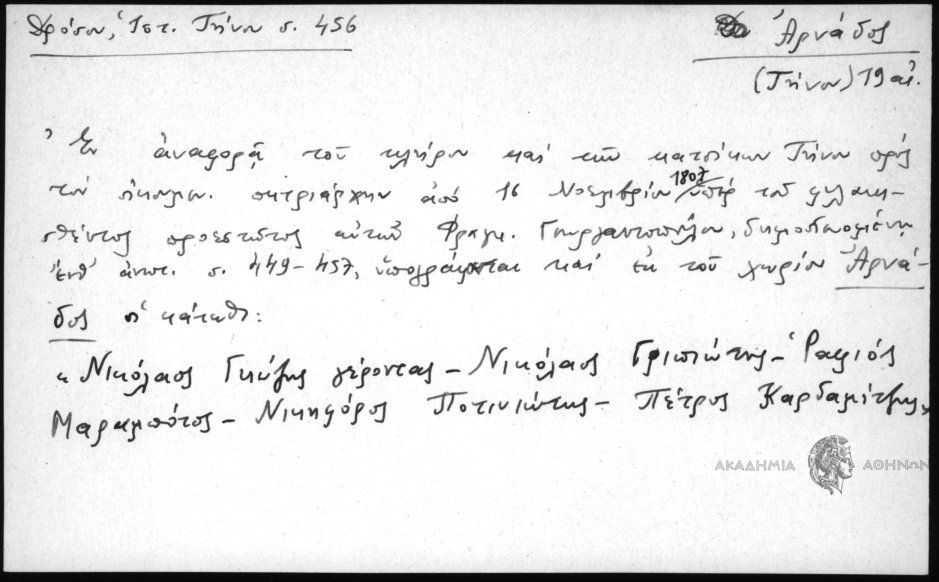 Δρόσου, Ἱστ. Τήνου σ. 456
Ἀρνάδος
(Τήνου) 19 αἰ.
Ἐν ἀναφορᾷ τοῦ κλήρου καὶ τῶν κατοίκων Τήνου πρός
τόν οἰκουμ. πατριάρχην ἀπό 16 Νοεμβρίου 1807 ὑπέρ τοῦ φυλακι-
σθέντος προεστῶτος αὐτῶν Φραγκ. Γεωργαντοπούλου, δημοσιευομένῃ
ἔνθ' ἀνωτ. σ. 449-457, ὑπογράφονται καὶ ἐκ τοῦ χωρίου Ἀρνά-
δος οἱ κάτωθι:
« Νικόλαος Γκύζης γέροντας - Νικόλαος Γριπιώτης -
Μαραμπότος - Νικηφόρος Ποτινιώτης - Πέτρος Καρδαμίτζης »
ΑΚΑΔΗΜΙΑ ΑΘΗΝΩΝ